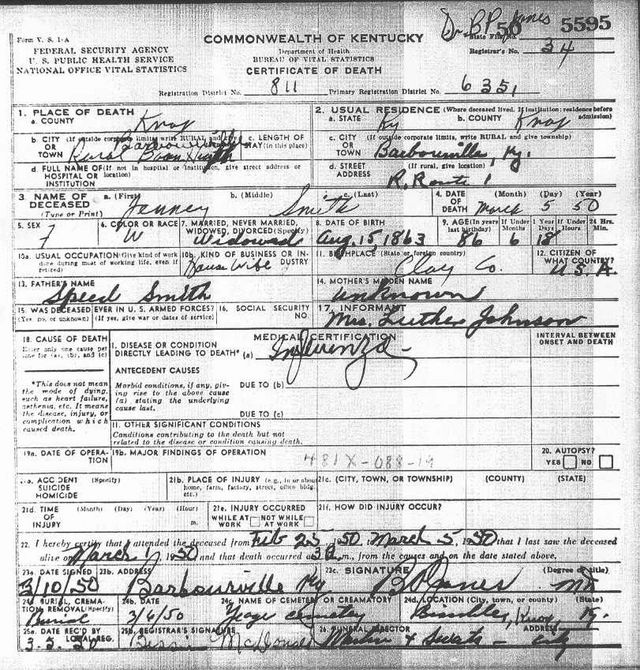 Dr. B.P. Jones
50 5595
Form V. S. 1-A
COMMONWEALTH OF KENTUCKY
State File No.
FEDERAL SECURITY AGENCY
Department of Health
Registrar's No. 34
U. S. PUBLIC HEALTH SERVICE
BUREAU OF VITAL STATISTICS
NATIONAL OFFICE VITAL STATISTICS
CERTIFICATE OF DEATH
Registration District No. 811 Primary Registration District No. 6351
1. PLACE OF DEATH
a. COUNTY Knox
2. USUAL RESIDENCE (Where deceased lived. If institution: residence before admission)
a. STATE Ky b. COUNTY Knox
b. CITY (If outside corporate limits write RURAL and give OR TOWN Rural Barbourville
c. LENGTH OF STAY (in this place)
c. CITY (If outside corporate limits, write RURAL and give township) OR TOWN Barbourville, Ky.
d. FULL NAME OF (If not in hospital or institution, give street address or location) HOSPITAL OR INSTITUTION
d. STREET ADDRESS (If rural, give location) R. Route 1
3. NAME OF DECEASED (Type or Print) a. (First) b. (Middle) Smith c. (Last)
4. DATE OF DEATH (Month) (Day) (Year) March 5 50
5. SEX F
6. COLOR OR RACE W
7. MARRIED, NEVER MARRIED, WIDOWED, DIVORCED (Specify) Widowed
8. DATE OF BIRTH Aug, 15, 1863
9. AGE (In years last birthday) 86 If Under 1 Year Months 6 Days 18 If Under 24 Hrs. Hours Min.
10a. USUAL OCCUPATION (Give kind of work done during most of working life, even if retired)
10b. KIND OF BUSINESS OR INDUSTRY House Wife
11. BIRTHPLACE (State or foreign country) Clay Co.
12. CITIZEN OF WHAT COUNTRY? U.S.A.
13. FATHER'S NAME Speed Smith
14. MOTHER'S MAIDEN NAME Unknown
15. WAS DECEASED EVER IN U. S. ARMED FORCES? (Yes, no, or unknown) (If yes, give war or dates of service)
16. SOCIAL SECURITY NO.
17. INFORMANT Mrs. Luther Johnson
18. CAUSE OF DEATH Enter only one cause per line for (a), (b), and (c)
MEDICAL CERTIFICATION
INTERVAL BETWEEN ONSET AND DEATH
I. DISEASE OR CONDITION DIRECTLY LEADING TO DEATH* (a) Influenza
*This does not mean the mode of dying, such as heart failure, asthenia, etc. It means the disease, injury, or complication which caused death.
ANTECEDENT CAUSES
Morbid conditions, if any, giving rise to the above cause (a) stating the underlying cause last.
DUE TO (b)
DUE TO (c)
II. OTHER SIGNIFICANT CONDITIONS
Conditions contributing to the death but not related to the disease or condition causing death.
19a. DATE OF OPERATION
19b. MAJOR FINDINGS OF OPERATION
481X-088-19
20. AUTOPSY? YES NO
21a. ACCIDENT SUICIDE HOMICIDE (Specify)
21b. PLACE OF INJURY (e.g., in or about home, farm, factory, street, office bldg. etc.)
21c. (CITY, TOWN, OR TOWNSHIP) (COUNTY) (STATE)
21d. TIME OF INJURY (Month) (Day) (Year) (Hour) m.
21e. INJURY OCCURRED WHILE AT WORK NOT WHILE AT WORK
21f. HOW DID INJURY OCCUR?
22. I hereby certify that I attended the deceased from Feb 25 1950, to March 5, 1950 that I last saw the deceased
alive on March 1, 1950 and that death occurred at m., from the causes and on the date stated above.
23a. DATE SIGNED 3/10/50
23b. ADDRESS Barbourville Ky
23c. SIGNATURE B P Jones (Degree or title) MD
24a. BURIAL, CREMATION REMOVAL (Specify) Burial
24b. DATE 3/6/50
24c. NAME OF CEMETERY OR CREMATORY cemetery
24d. LOCATION (City, town, or county) (State) Bimble, Knox Ky.
25a. DATE REC'D BY LOCAL REG.
25b. REGISTRAR'S SIGNATURE
26. FUNERAL DIRECTOR